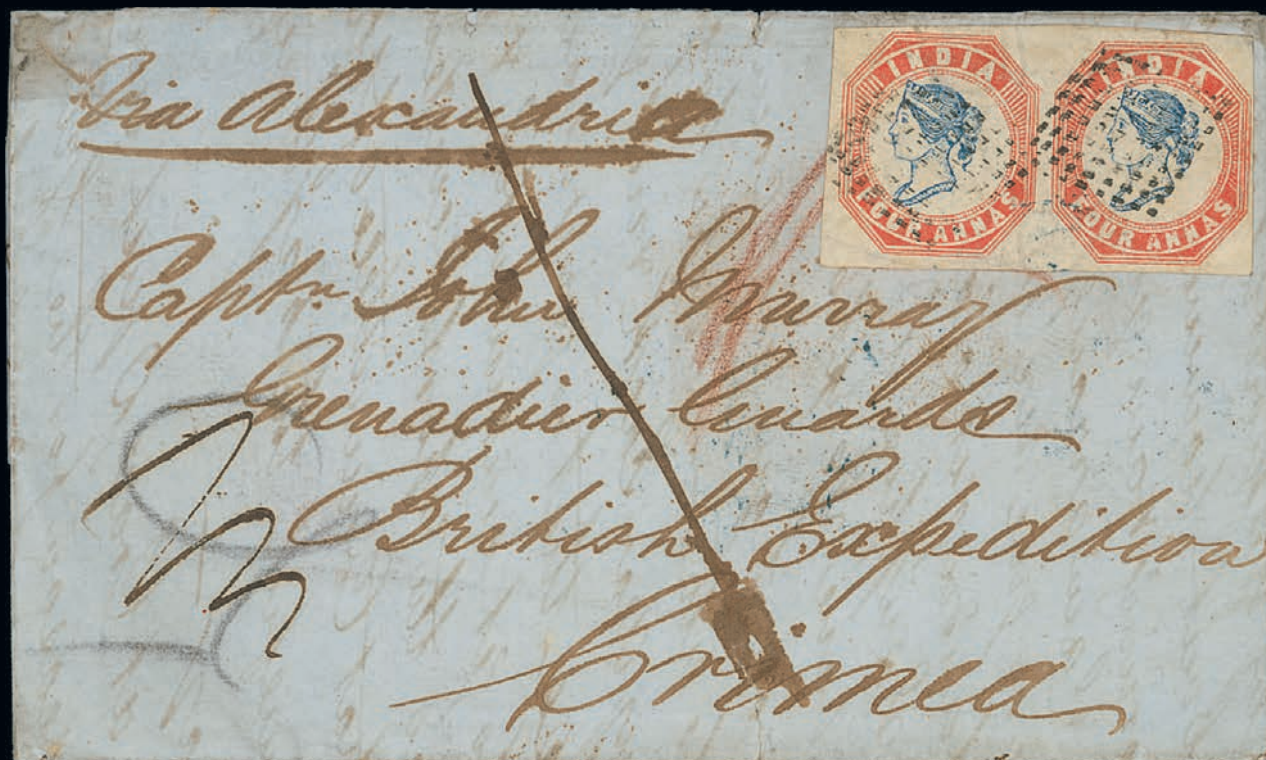 Via Alexandria
INDIA
FOUR ANNAS
INDIA
FOUR ANNAS
Captn John Murray
Grenadier Guards
British Expedition
Crimea